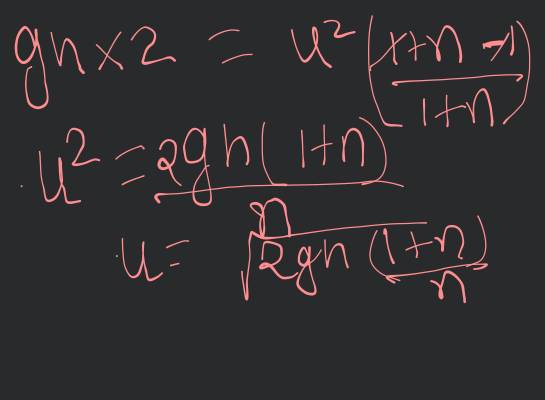 gh×2 = u² (1+n-1 / 1+n)
u² = 2gh(1+n) / n
u = √2gh (1+n) / n